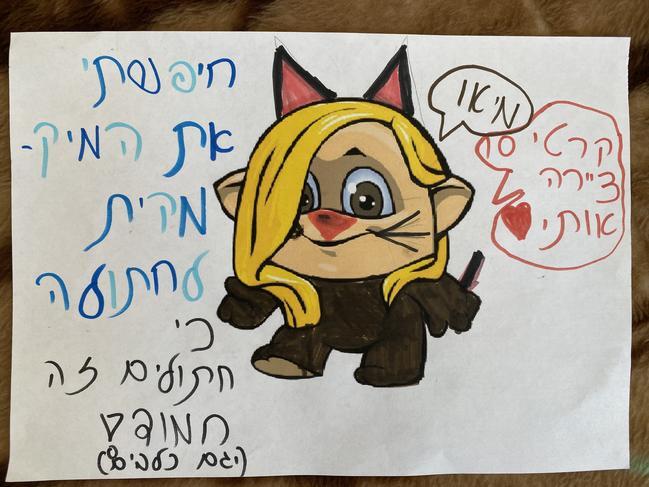 חיפשתי
את המיק-
מקית
לחתולה
כי
חתולים זה
(וגם כלבים!)
מיאו
ציירה
אותי